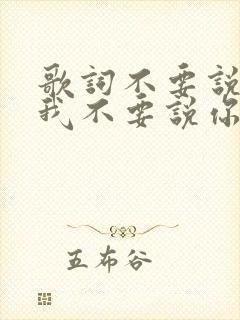 歌詞不要說
我不要說你
五布谷